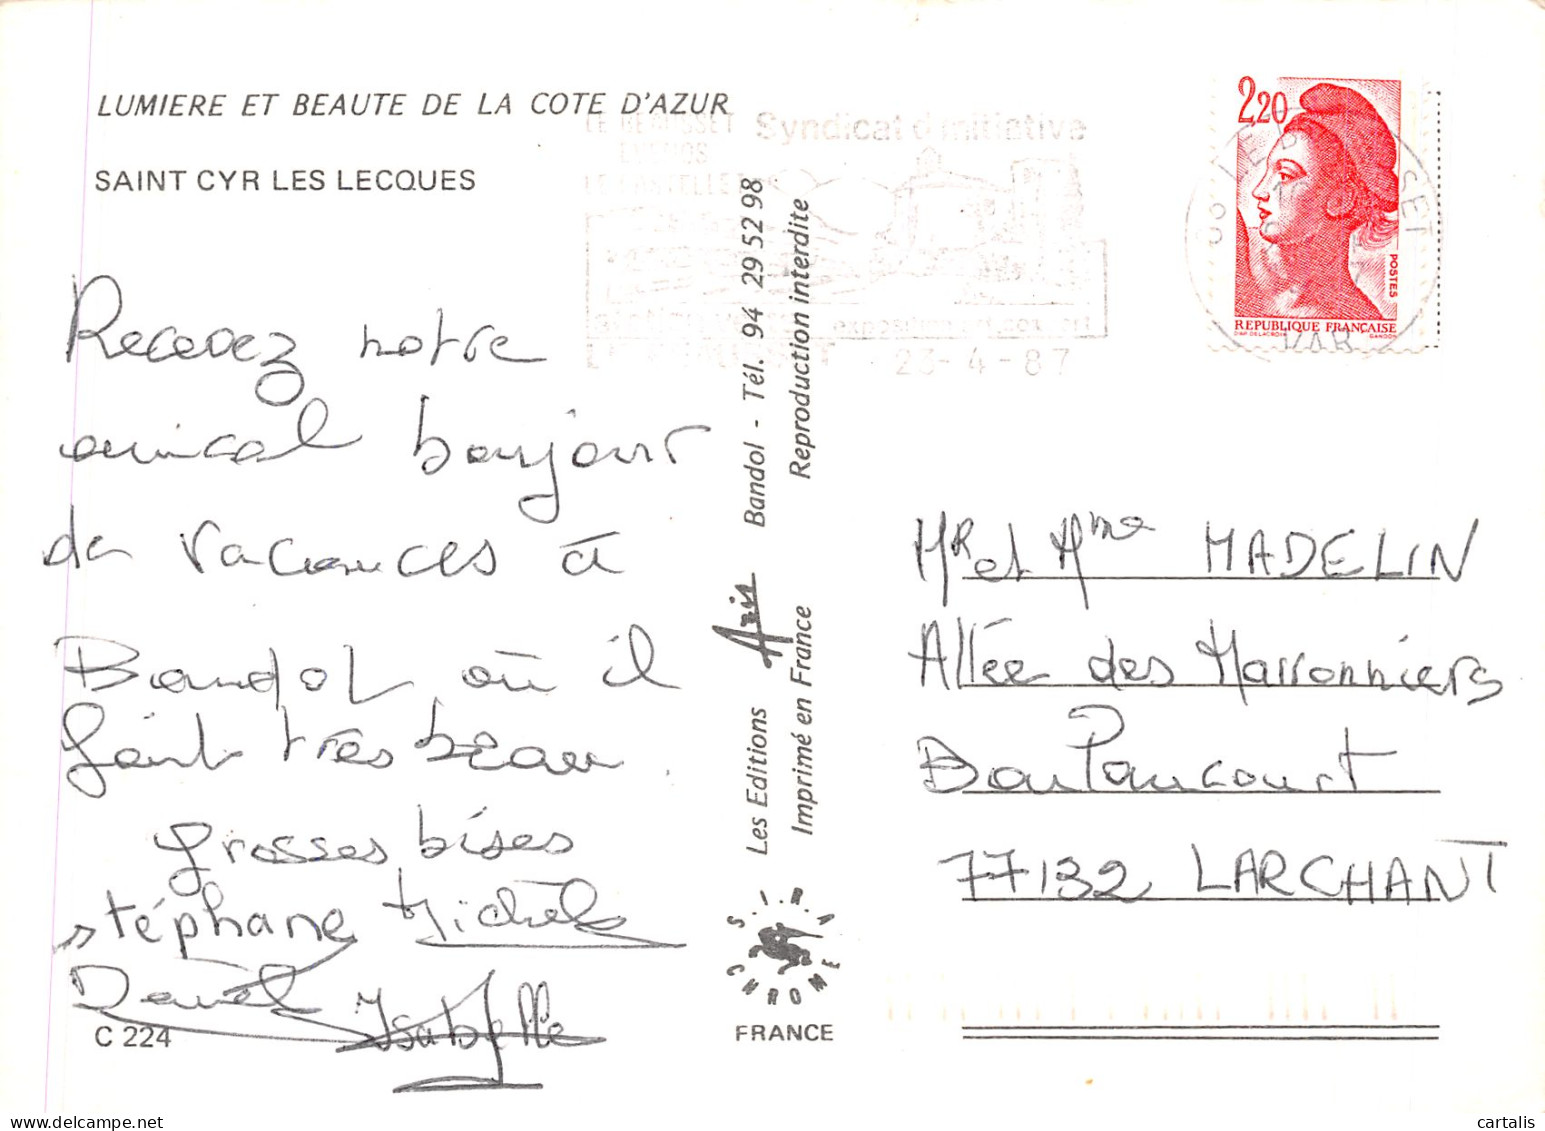 LUMIERE ET BEAUTE DE LA COTE D'AZUR
SAINT CYR LES LECQUES
LE BEAUSSET
EVENOS
LE CASTELLET
Syndicat d'initiative
23-4-87
2,20
POSTES
REPUBLIQUE FRANÇAISE
GANDON
VAR
Recevez notre
amical bonjour
de vacances à
Bandol où il
fait très beau.
Grosses bises
Stéphane Michèle
Daniel Isabelle
C 224
Les Editions Aris Bandol - Tél. 94 29 52 98
Imprimé en France Reproduction interdite
S.I.R.A
CHROME
FRANCE
Mr et Mme MADELIN
Allée des Marronniers
Boutancourt
77132 LARCHANT
cartalis